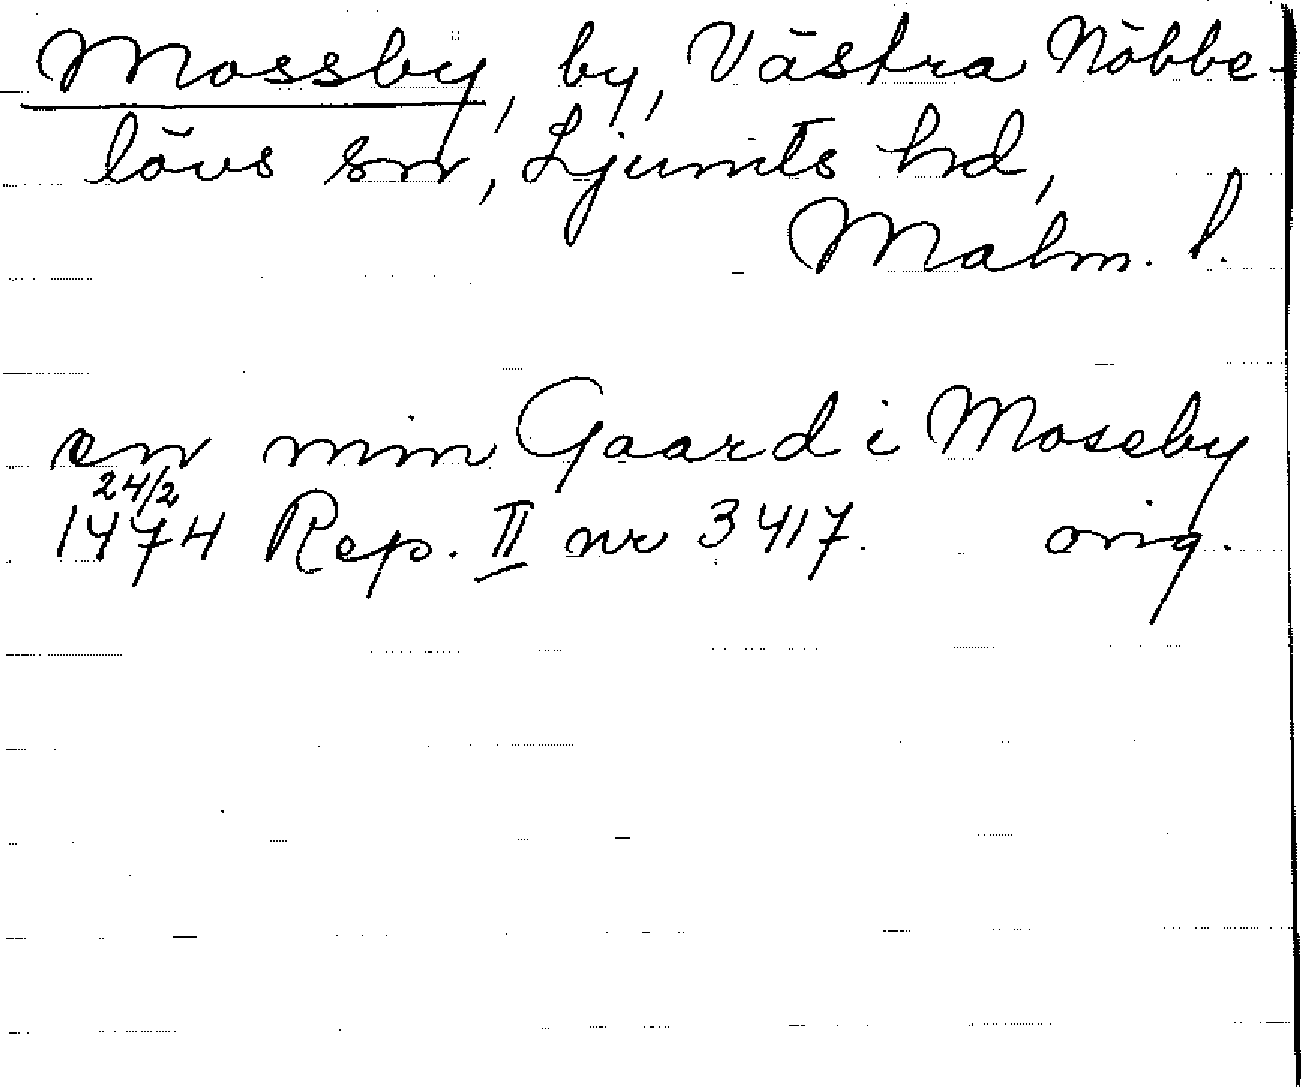 Mossby, by, Västra Nöbbe-
lövs sn, Ljunits hd,
Malm. l.
en min Gaard i Moseby
24/2
1474 Rep. II nr 3417. orig.